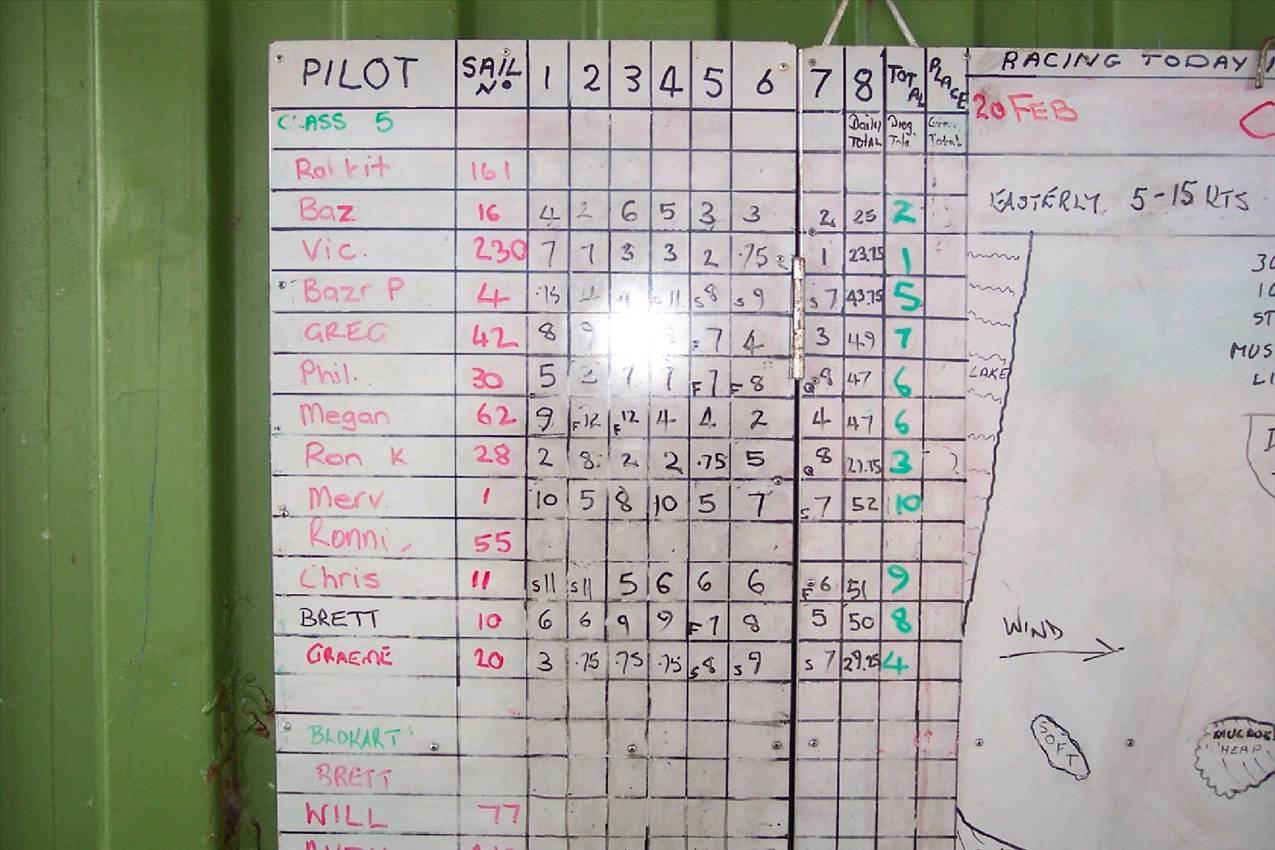 PILOT SAIL Nº 1 2 3 4 5 6 7 8 TOTAL PLACE RACING TODAY
CLASS 5 Daily TOTAL Prog. 20 FEB
161
Baz 16 4 2 6 5 3 3 2 25 2 EASTERLY 5-15 KTS
Vic. 230 7 7 3 3 2 .75 1 23.75 1
Bazr P 4 .75 4 S 8 S 9 S 7 43.75 5
GREG 42 8 9 F 7 4 3 49 7
Phil. 30 5 7 7 F 7 F 8 Q 8 47 6 LAKE
Megan 62 9 F 12 F 12 4 4 2 4 47 6
Ron K 28 2 8 2 2 .75 5 Q 8 3
Merv 1 10 5 8 10 5 7 S 7 52 10
Ronni 55
Chris 11 S 11 S 11 5 6 6 6 F 6 51 9
BRETT 10 6 6 9 9 F 7 8 5 50 8 WIND
GRAEME 20 3 .75 .75 .75 S 8 S 9 S 7 29.25 4
BLOKART SOFT
BRETT HEAP
WILL 77